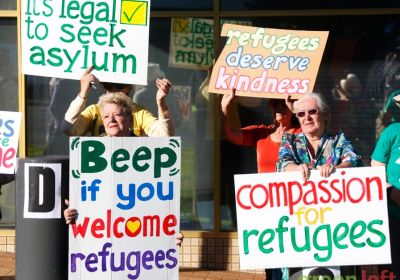 It's legal
to seek
asylum
refugees
deserve
kindness
D
(Beep)
if you
welcome
refugees
compassion
for
refugees